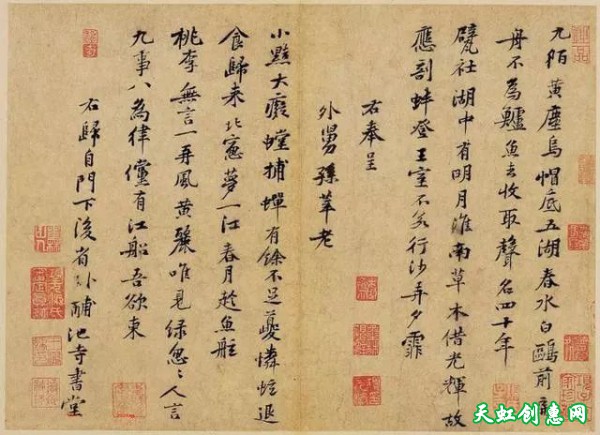 九陌黃塵烏帽底五湖春水白鷗前扁
舟不為鱸魚去收取聲名四十年
甓社湖中有明月淮南草木借光輝故
應剖蚌登王室不若行沙弄夕霏
右奉呈
外舅孫莘老
小黠大癡螳捕蟬有餘不足夔憐蚿退
食歸來北窻夢一江春月趂魚船
桃李無言一再風黃鸝唯見綠怱〻人言
九事八為律儻有江船吾欲東
右歸自門下後省卧酺池寺書堂
天虹创惠网